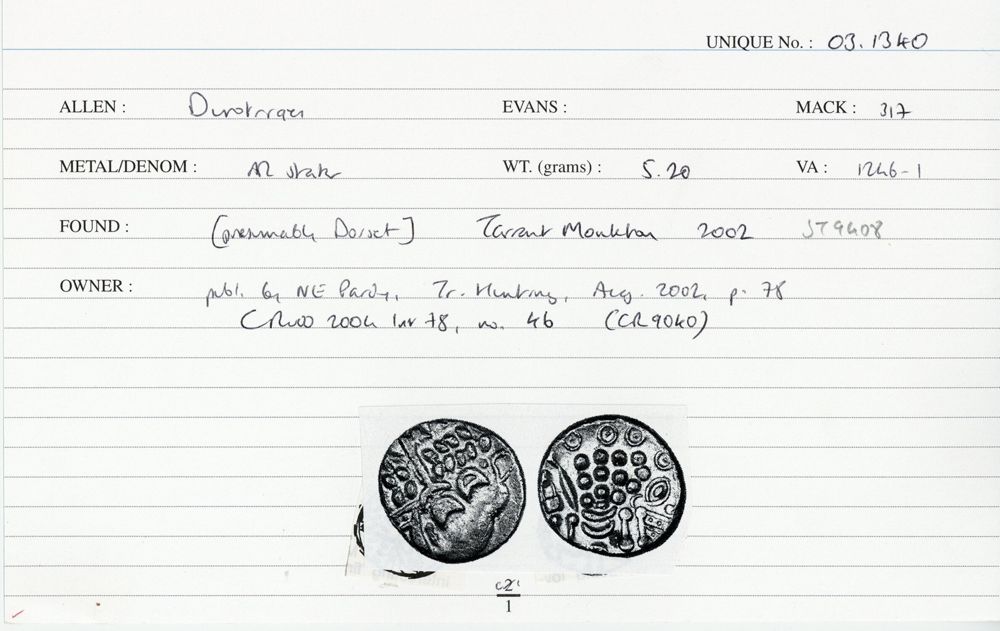 UNIQUE No. : 03.1340
ALLEN : Durotriges EVANS : MACK : 317
METAL/DENOM : AR stater WT. (grams) : 5.20 VA : 1246-1
FOUND : [presumably Dorset] Tarrant Monkton 2002 ST9408
OWNER : publ. by NE Pardy, Tr. Hunting, Aug. 2002, p. 78
2004 Inv 78, no. 46 (CR9040)
1